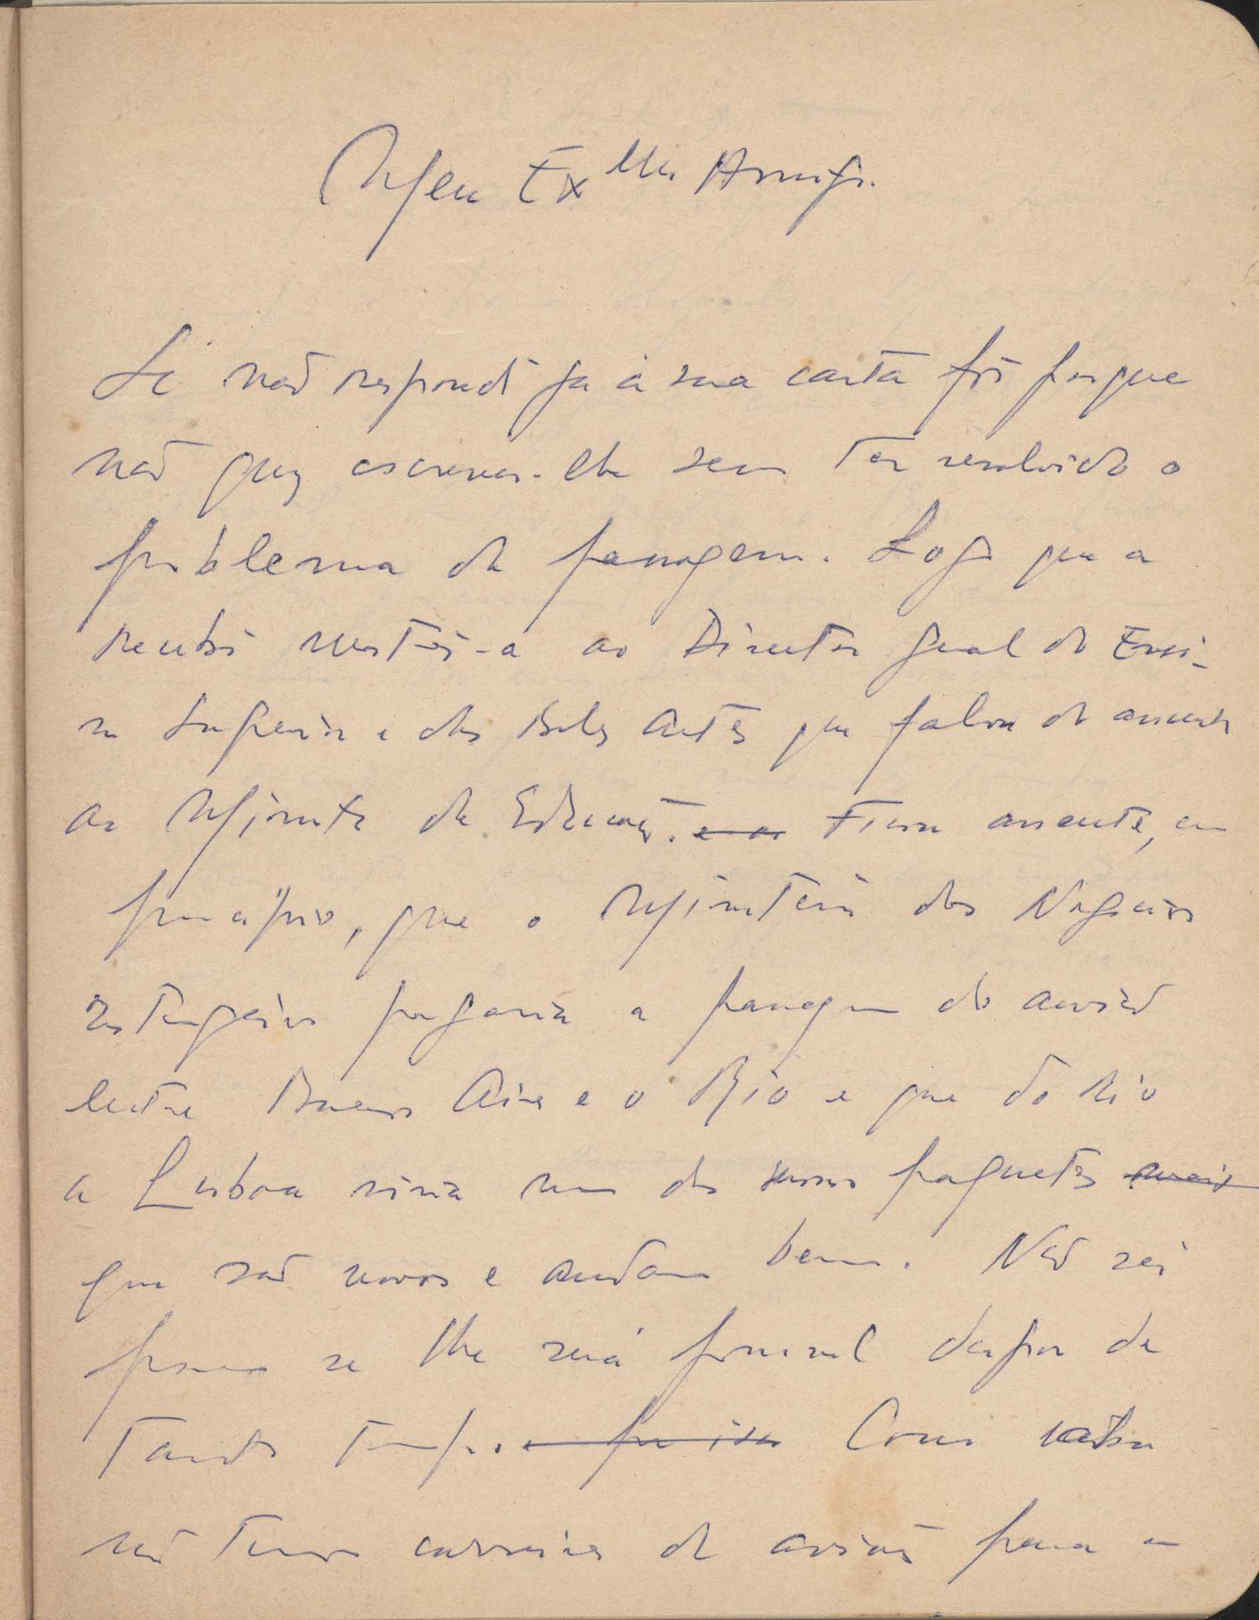 Meu Exmo Amigo.
Se não respondi já á sua carta foi porque
não quiz escrever-lhe sem ter resolvido o
problema da passagem. Logo que a
recebi mostrei-a ao Director geral do Ensi-
no Superior e das Belas Artes que falou do assunto
ao Ministro da Educação. e o Ficou assente, em
principio, que o Ministerio dos Negocios
Estrangeiros pagaria a passagem do avião
entre Buenos Aires e o Rio e que do Rio
a Lisboa viria num dos nossos paquetes mais
que são novos e andam bem. Não sei
porem se lhe será possivel dispor de
tanto tempo. e por isso Como
não temos carreiras de aviões para a